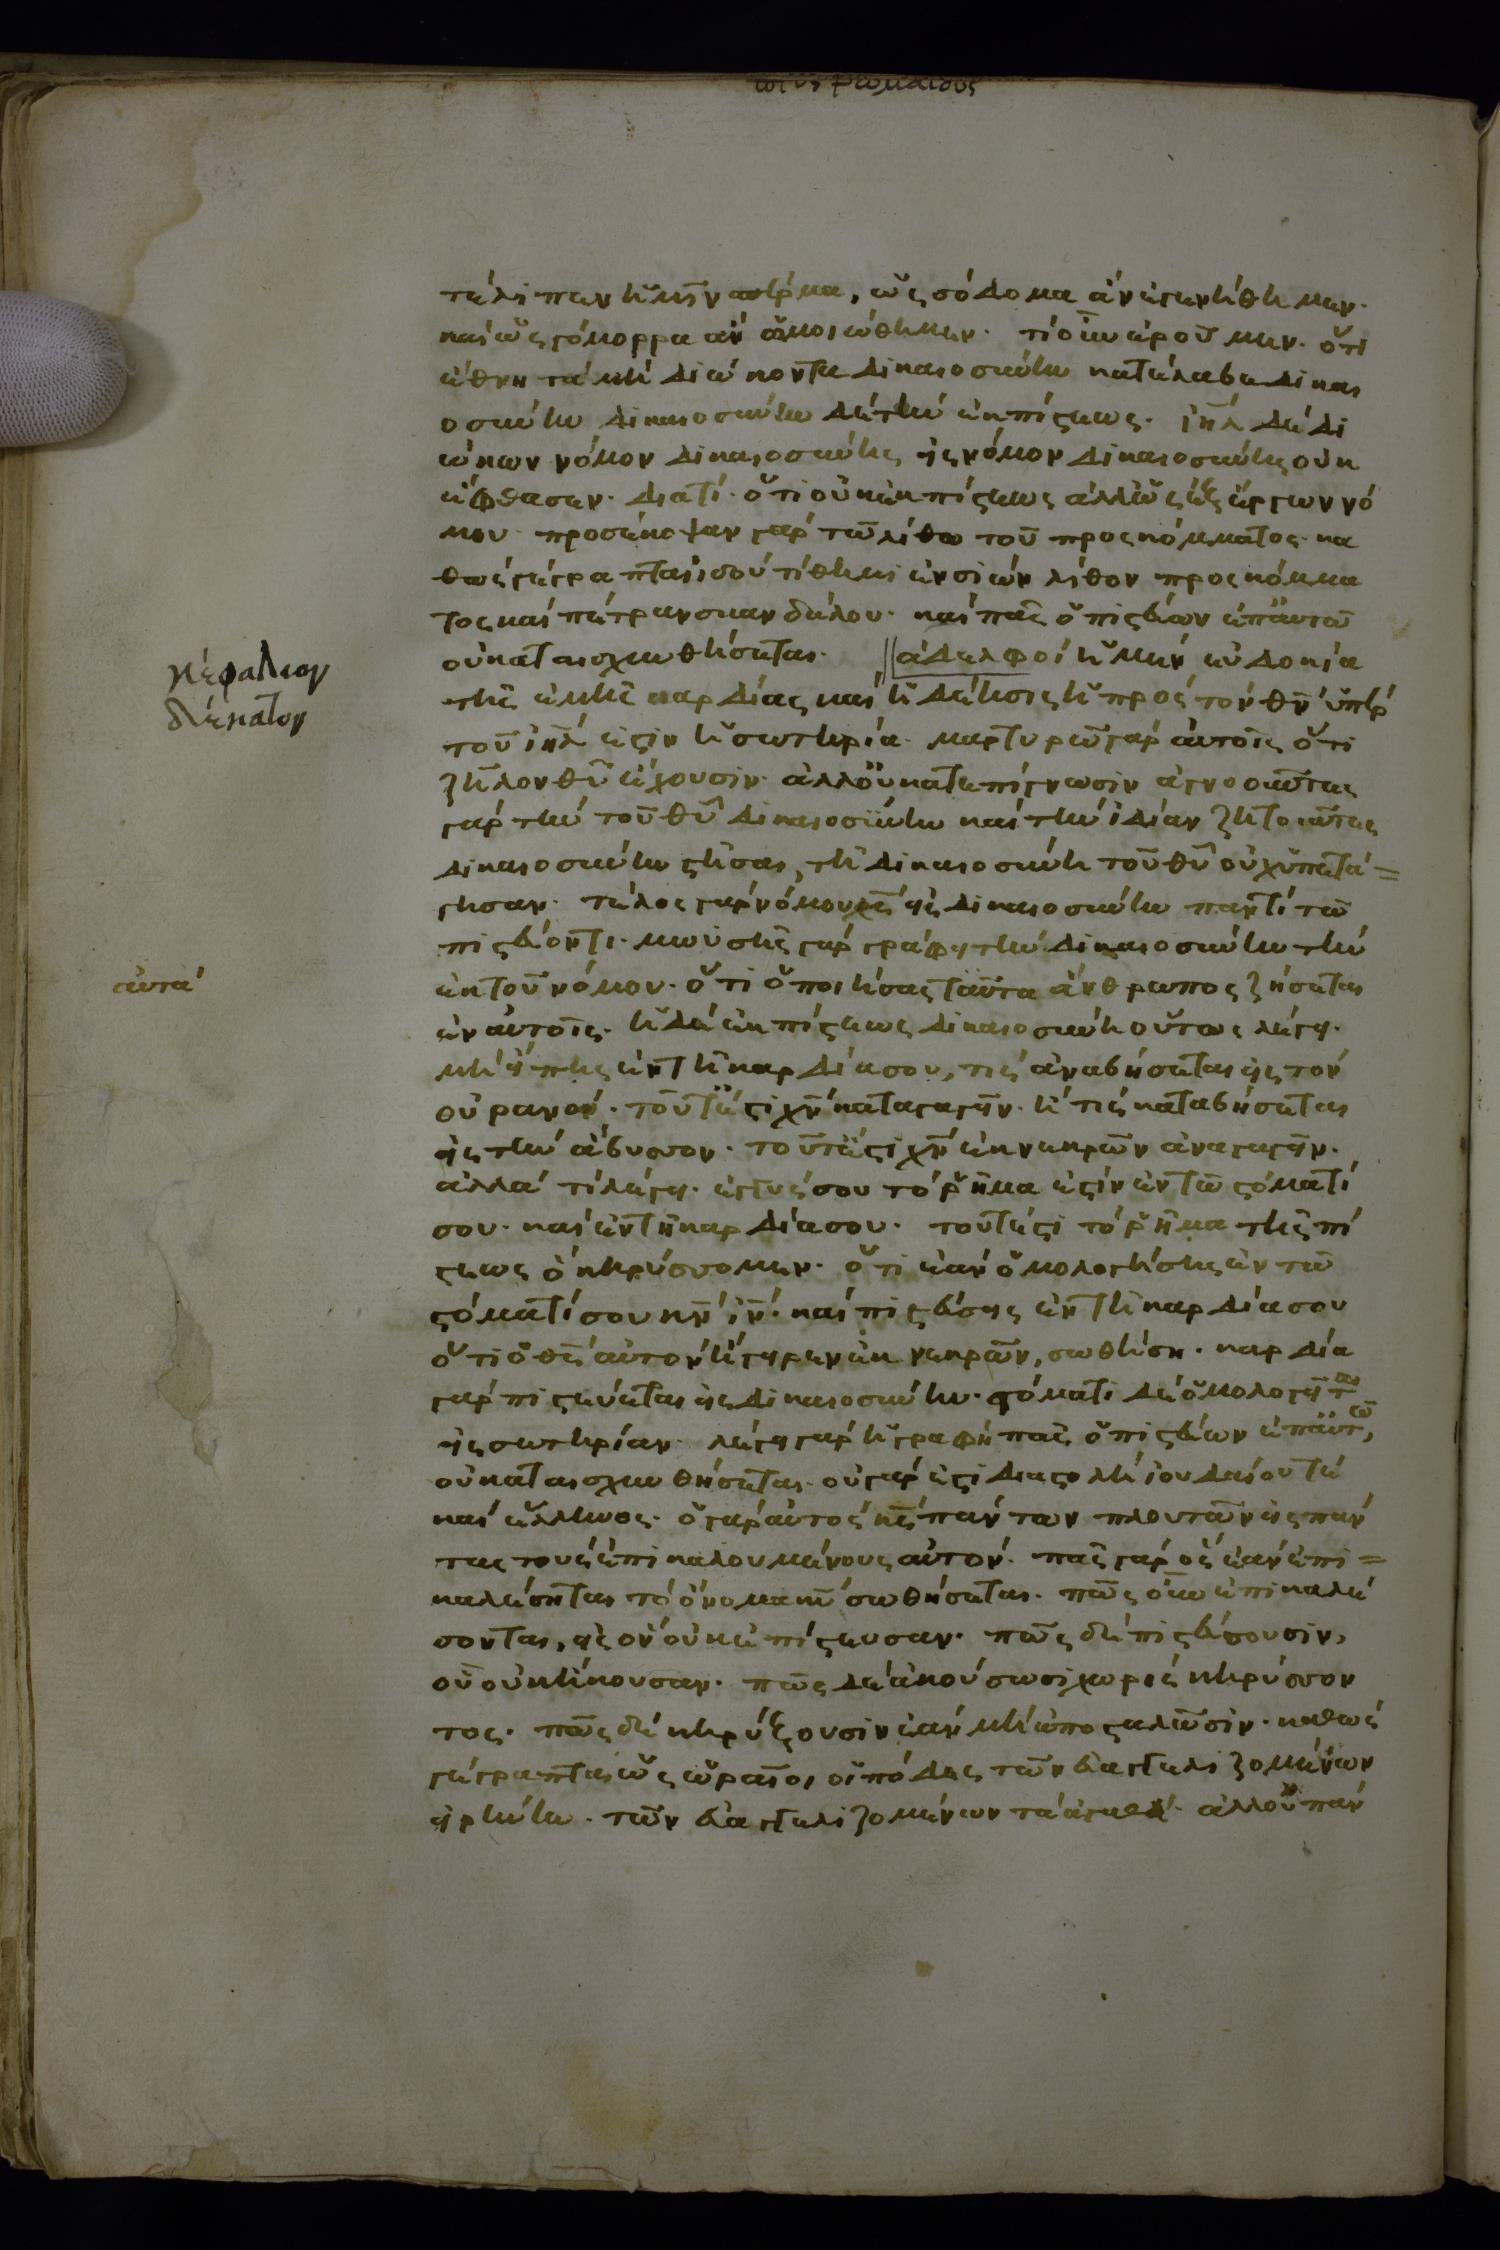 πρὸς ῥωμαίους
τέλιπεν ἡμῖν σπέρμα, ὡς σόδομα ἂν ἐγενήθημεν.
καὶ ὡς γόμορρα ἂν ὡμοιώθημεν. τί οὖν ἐροῦμεν. ὅτι
ἔθνη τὰ μὴ διώκοντα δικαιοσύνην κατέλαβε δικαι
οσύνην δικαιοσύνην δὲ τὴν ἐκ πίστεως. ἰηλ δὲ δι
ώκων νόμον δικαιοσύνης εἰς νόμον δικαιοσύνης οὐκ
ἔφθασεν. διατί. ὅτι οὐκ ἐκ πίστεως ἀλλ' ὡς ἐξ ἔργων νό
μου. προσέκοψαν γὰρ τῶ λίθω τοῦ προσκόμματος. κα
θὼς γέγραπται ἰδοὺ τίθημι ἐν σιὼν λίθον προσκόμμα
τος καὶ πέτραν σκανδάλου. καὶ πᾶς ὁ πιστεύων ἐπ' αὐτῶ
οὐ καταισχυνθήσεται. ἀδελφοὶ ἡ μὲν εὐδοκία
κεφάλαιον
δέκατον
τῆς ἐμῆς καρδίας καὶ ἡ δέησις ἡ πρὸς τὸν θν ὑπὲρ
τοῦ ἰηλ ἐστιν ἡ σωτηρία. μαρτυρῶ γὰρ αὐτοῖς ὅτι
ζῆλον θυ ἔχουσιν. ἀλλ' οὐ κατ' ἐπίγνωσιν ἀγνοοῦντες
γὰρ τὴν τοῦ θυ δικαιοσύνην καὶ τὴν ἰδίαν ζητοῦντες
δικαιοσύνην στῆσαι, τῆ δικαιοσύνη τοῦ θυ οὐχ ὑπετά=
γησαν. τέλος γὰρ νόμου χς εἰς δικαιοσύνην παντὶ τῶ
πιστεύοντι. μωϋσῆς γὰρ γράφει τὴν δικαιοσύνην τὴν
ἐκ τοῦ νόμου. ὅτι ὁ ποιήσας ταῦτα ἄνθρωπος ζήσεται
αὐτὰ
ἐν αὐτοῖς. ἡ δὲ ἐκ πίστεως δικαιοσύνη οὕτως λέγει.
μὴ εἴπης ἐν τῆ καρδία σου, τίς ἀναβήσεται εἰς τὸν
οὐρανόν. τοῦτ' ἔστι χν καταγαγεῖν. ἢ τίς καταβήσεται
εἰς τὴν ἄβυσσον. τοῦτ' ἔστι χν ἐκ νεκρῶν ἀναγαγεῖν.
ἀλλὰ τί λέγει. ἐγγύς σου τὸ ῥῆμα ἐστὶν ἐν τῶ στόματί
σου. καὶ ἐν τῆ καρδία σου. τοῦτ' ἔστι τὸ ῥῆμα τῆς πί
στεως ὃ κηρύσσομεν. ὅτι ἐὰν ὁμολογήσης ἐν τῶ
στόματί σου κν ιν. καὶ πιστεύσης ἐν τῆ καρδία σου
ὅτι ὁ θς αὐτὸν ἤγειρεν ἐκ νεκρῶν, σωθήση. καρδία
γὰρ πιστεύεται εἰς δικαιοσύνην. στόματι δὲ ὁμολογεῖται
εἰς σωτηρίαν. λέγει γὰρ ἡ γραφὴ πᾶς ὁ πιστεύων ἐπ' αὐτῶ,
οὐ καταισχυνθήσεται. οὐ γάρ ἐστι διαστολὴ ἰουδαίου τέ
καὶ ἕλληνος. ὁ γὰρ αὐτὸς κς πάντων πλουτῶν εἰς πάν
τας τοὺς ἐπικαλουμένους αὐτόν. πᾶς γὰρ ὃς ἐὰν ἐπι=
καλέσηται τὸ ὄνομα κυ σωθήσεται. πῶς οὖν ἐπικαλέ
σονται, εἰς ὃν οὐκ ἐπίστευσαν. πῶς δὲ πιστεύσουσιν,
οὗ οὐκ ἤκουσαν. πῶς δὲ ἀκούσωσι χωρὶς κηρύσσον
τος. πῶς δὲ κηρύξουσιν ἐὰν μὴ ἀποσταλῶσιν. καθὼς
γέγραπται ὡς ὡραῖοι οἱ πόδες τῶν εὐαγγελιζομένων
εἰρήνην. τῶν εὐαγγελιζομένων τὰ ἀγαθά. ἀλλ' οὐ πάν